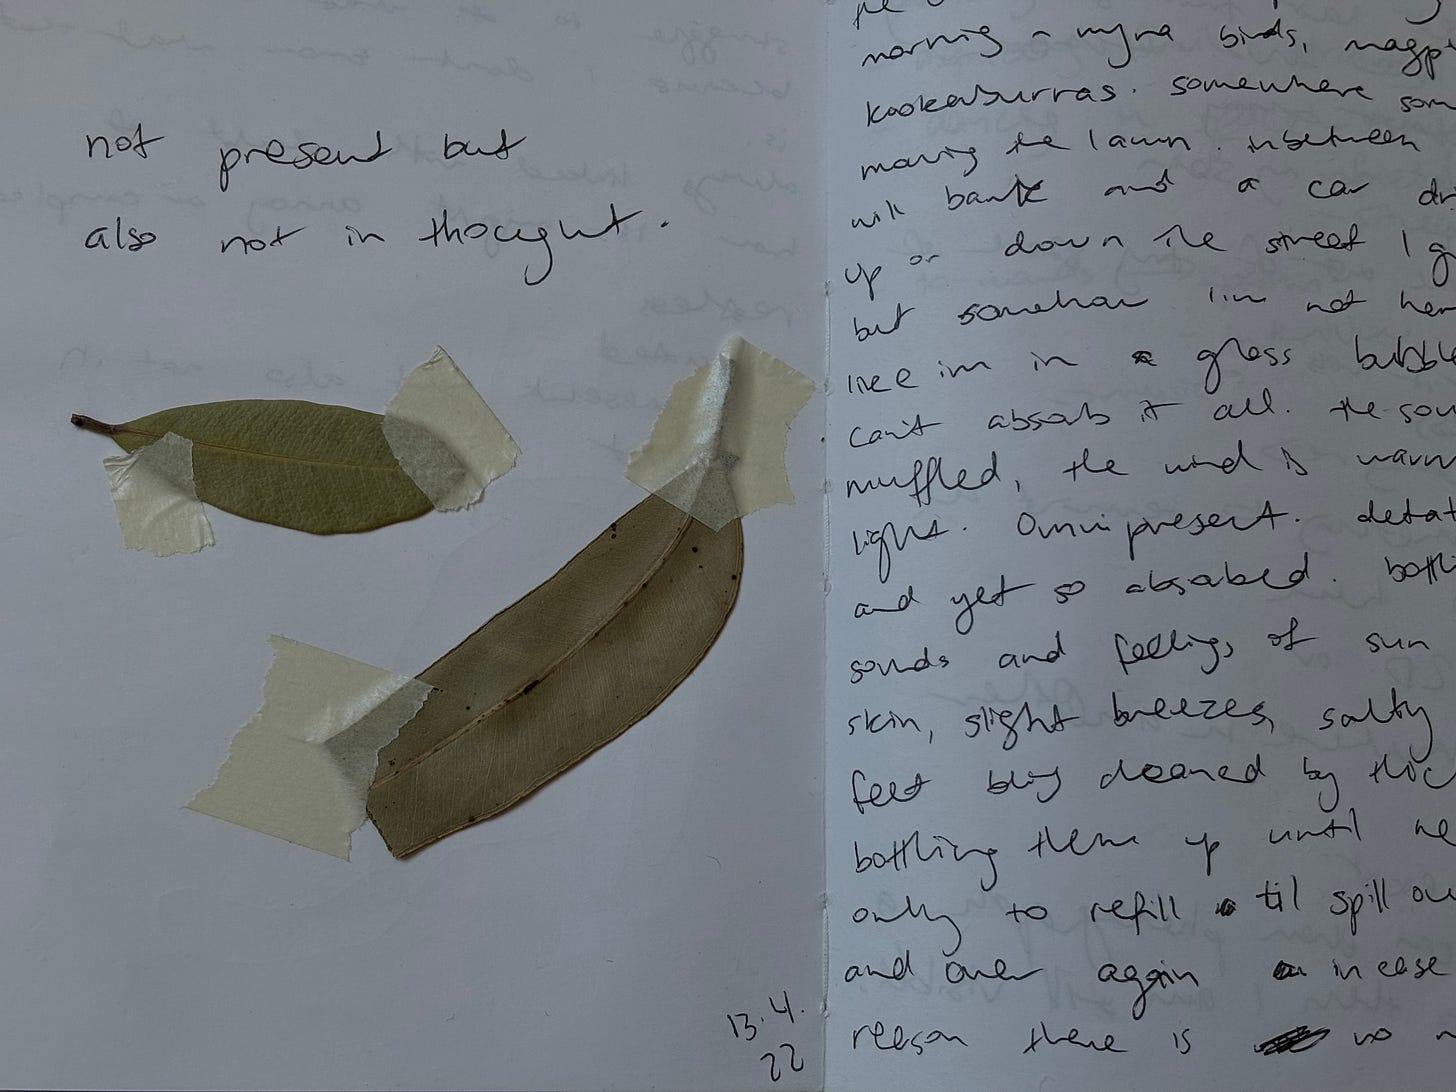 not present but
also not in thought.
13.4.
22
morning - myna birds, magp
kookaburras. somewhere som
mowing the lawn. inbetween
will bark and a car dr
up or down the street I g
but somehow im not her
like im in a glass bubble
can't absorb it all. the sou
muffled, the wind is warm
light. Omnipresent. detat
and yet so absorbed. bottli
sounds and feelings of sun
skin, slight breezes, salty
feet being cleaned by thic
bottling them up until ne
only to refill til spill ou
and over again in case
reason there is no